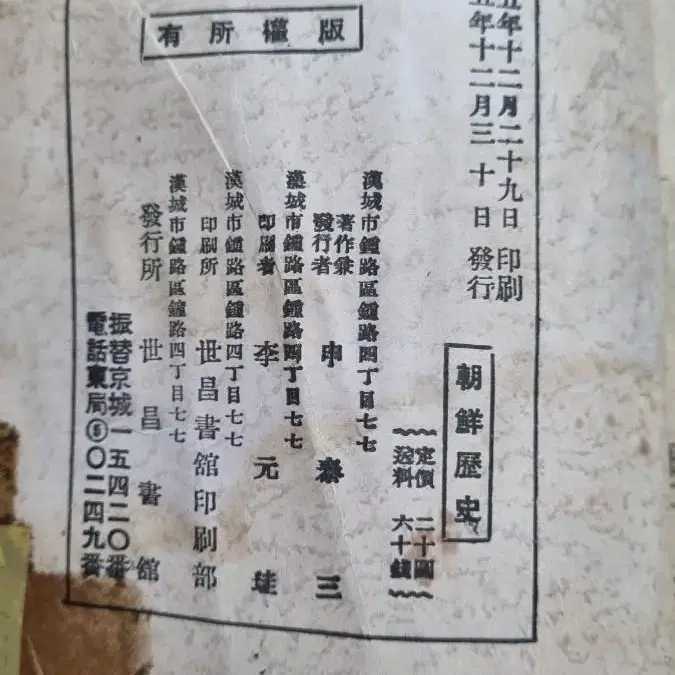 版權所有
五年十二月二十九日 印刷
五年十二月三十日 發行
朝鮮歷史
定價 二十圓
送料 六十錢
漢城市鐘路區鐘路四丁目七七
著作兼
發行者 申泰三
漢城市鐘路區鐘路四丁目七七
印刷者 李元珪
漢城市鐘路區鐘路四丁目七七
印刷所 世昌書舘印刷部
漢城市鐘路區鐘路四丁目七七
發行所 世昌書舘
振替京城一五四二〇番
電話東局⑤〇二四九番